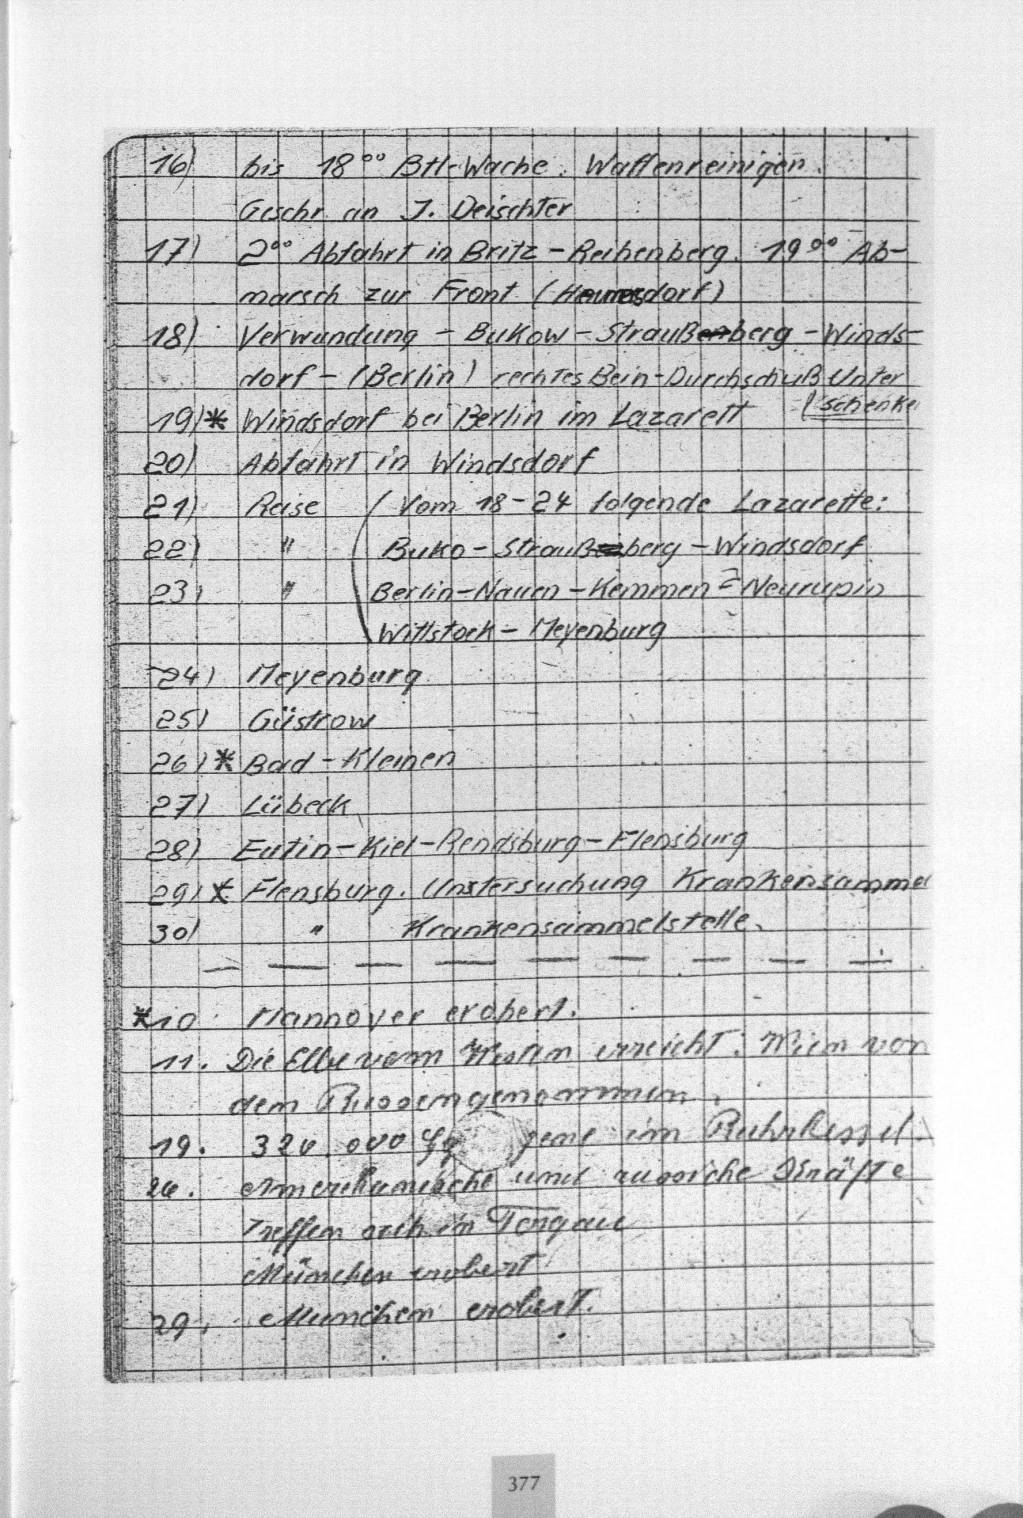 16) bis 18⁰⁰ Btl-Wache. Waffenreinigen.
Geschr. an J. Deischter
17) 2⁰⁰ Abfahrt in Britz - Reihenberg. 19⁰⁰ Ab-
marsch zur Front (
18) Verwundung - Bukow - Straußberg - Winds-
dorf - (Berlin) rechtes Bein - Durchschuß Unter
(schenkel
19) * Windsdorf bei Berlin im Lazarett
20) Abfahrt in Windsdorf
21) Reise (Vom 18-24 folgende Lazarette:
22) " Buko - Straußberg - Windsdorf
23) " Berlin - Nauen - Kemmen - Neurupin
Wittstock - Meyenburg
24) Meyenburg
25) Güstrow
26) * Bad - Kleinen
27) Lübeck
28) Eutin - Kiel - Rendsburg - Flensburg
29) * Flensburg. Unstersuchung Krankensammel
30) " Krankensammelstelle.
* 10. Hannover erobert.
11. Die Elbe vom Westen erreicht. Wien von
den Russen genommen.
19. 320.000 gene im Ruhrkessel.
26. Amerikanische und russische Kräfte
treffen sich in Torgau
München erobert
29. München erobert.
377